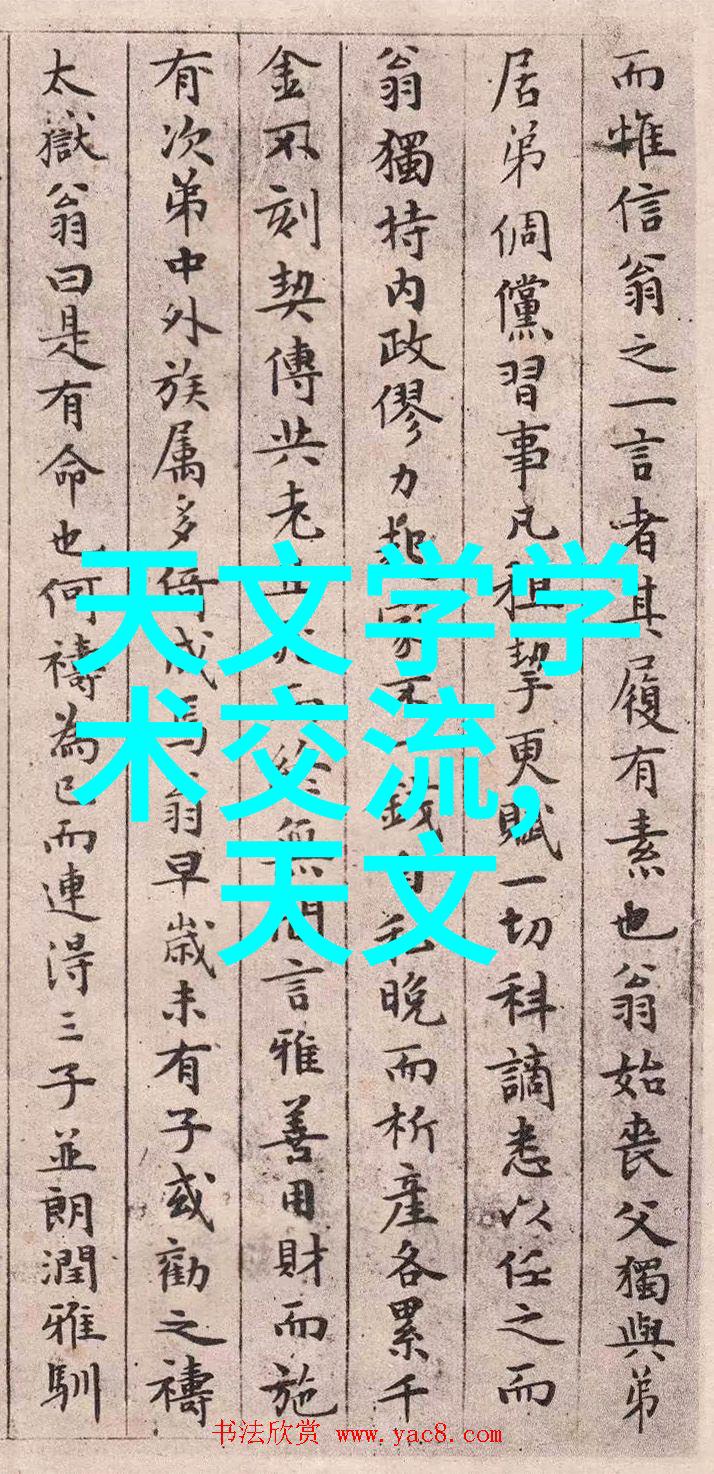 而惟信翁之一言者其履有素也翁始喪父獨與弟
居弟倜儻習事凡租挈更賦一切科謫悉以任之而
翁獨持内政僇力起家不一錢自私晚而析產各累千
金不刻契傳共老且死而終無間言雅善用財而施
有次弟中外族属多倚成焉翁早嵗未有子或勸之禱
太嶽翁曰是有命也何禱為已而連得三子並朗潤雅馴
天文学学
术交流,
天文
书法欣赏 www.yac8.com